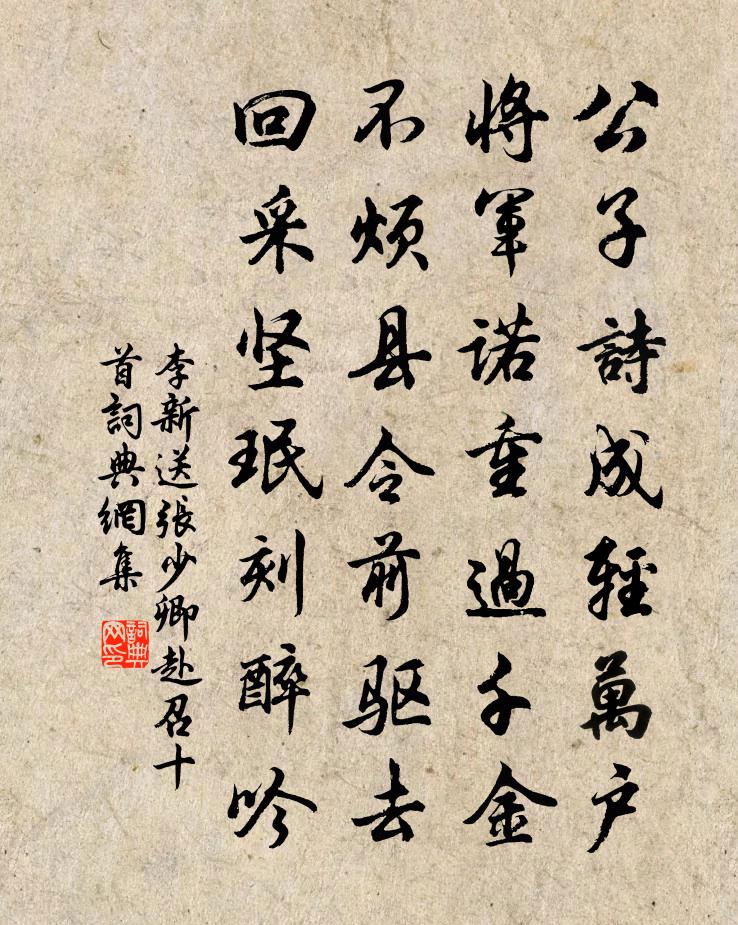 公子詩成輕萬户
將軍諾重過千金
不煩县令前驱去
回采坚珉刻醉吟
李新送張少卿赴召十
首詞典網集
詞典
网印